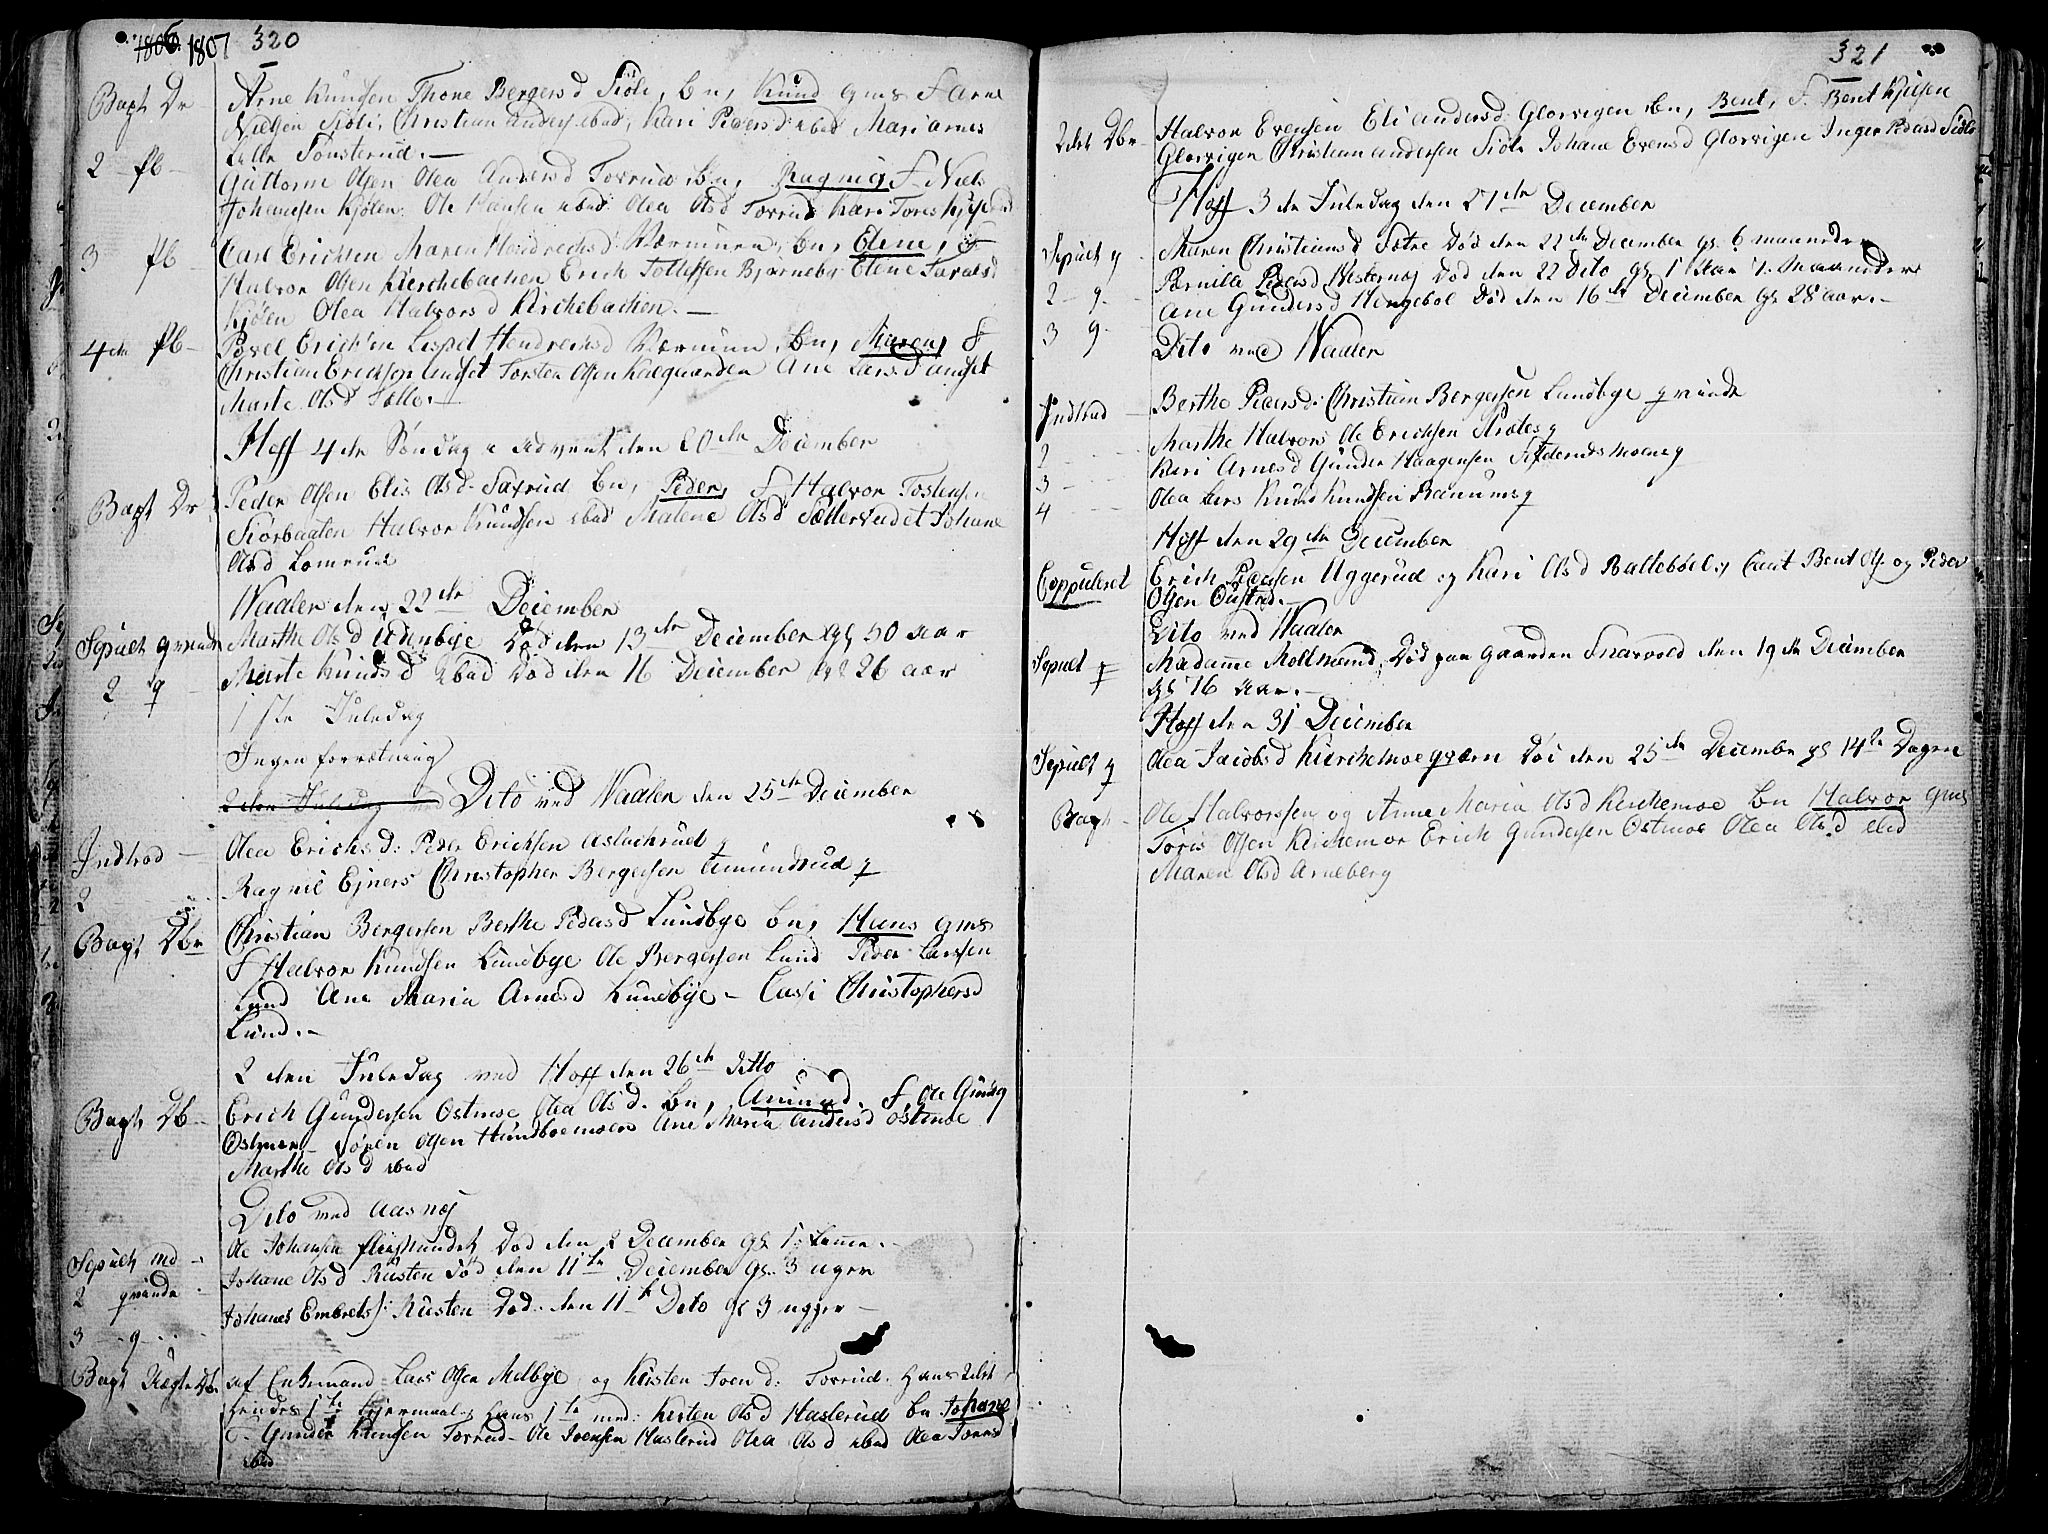 1806. 1807 320
Bapt Dr Arne Knudsen Thone Bergersd Siøli, bn, Knud gms F Arne
Nielsen Siøli, Christian Anders ibid, Kari Pedersd ibid Mari Arnes
Lille Tønsterud.
2 pb Guttorm Olsen Olea Andersd Torrud bn, Ragnig F Niels
Johansen Kjølen Ole Hansen ibid Olea Olsd Torrud Kari Tores
3 pb Carl Ericksen Maren Hendrichsd Wermunn, bn, Elene, F
Halvor Olsen Kierchebachen Erich Tollefsen Bjørneby Elene Taralsd
Kjølen Olea Halvorsd Kirchebachen.
4de pb Povel Erichsen Lispet Hendrechsd Wermunn, bn, Maren, F
Christian Erichsen Andset Torsten Olsen Kalgaarden Ane Larsd Andset
Marte Olsd Tælle.
Hoff 4de Søndag i Advent den 20de December
Bapt Dr Peder Olsen Elis Olsd Saxrud bn, Peder, F Halvor Tostensen
Skorbaaten Halvor Knudsen ibid Malene Olsd Sætterudet Johane
Olsd Lomrud
Waaler den 22de December
Sepult qvinde Marthe Olsd Udenbye Død den 13de December gl 50 aar
2 q Marte Knudsd ibid Død den 16 December gl 26 aar
1ste Juledag
Ingen forrætning
2den Juledag ved Dito ved Waaler den 25de December
Indtrod Olea Erichsd: Peder Ericksen Aslachrud q
2 Ragnil Ejners Christopher Bergersen Amundrud q
Bapt Dbn Christian Bergersen Berthe Pedersd Lundbye bn, Hans gms
F Halvor Knudsen Lundbye Ole Bergersen Lund Peder Larssen
Lund Ane Maria Arnesd Lundbye – Cassi Christophersd
Lund.
2den Juledag ved Hoff den 26de ditto
Bapt Db Erich Gundersen Ostmoe Olea Olsd. bn, Amund. F, Ole
Ostmoe Søren Olsen Hundboemoen Ane Maria Andersd Ostmoe
Marthe Olsd ibid
Dito ved Aasnæs
Sepult md Ole Johansen Død den 2 December gl 1
2 qvinde Johane Olsd Rusten død den 11te December gl. 3 uger
3 q Johanes Embrets: Rusten Død. den 11te Dito gl 3 ugger
Bapt Uægte Db af Enkemand Lars Olsen Melbye og Kirsten Joensd: Torrud. Hans 2det
hendes 1te Lejermaal, hans 1te med: Kirsten Olsd Haslerud bn Johane
Gunder Knudsen Torrud Ole Joensen Haslerud Olea Olsd ibid Olea
ibid
321
2det Dbn Halvor Evensen Eli Andersd: Glorvigen bn, Bent, F. Bent Kjelsen
Glorvigen Christian Andersen Siøli Johane Evensd Glorvigen Inger Pedersd Siøli
Hoff 3de Juledag den 27de December
Sepult q Maren Christiansd Sætre Død den 22de December gl. 6 maaneder
2 q Pernille Pedersd Westernæs Død den 22 Dito gl 1 aar 7. Maaneder
3 q Ane Gundersd Hengebøl Død den 16de December gl 28 aar.
Dito ved Waaler
Indtrod Berthe Pedersd: Christian Bergersen Lundbye qvinde
2 Marthe Halvors Ole Ericksen Stræte q
3 Kari Arnesd Gunder Haagensen moen q
4 Olea Lars Knud Knudsen Ranum q
Hoff den 29de December
Coppuleret Erich Pedersen Uggerud og Kari Olsd Baltebbel. Caut Bent Ols. og Peder
Olsen Oustad.
Dito ved Waaler
Sepult q Madame Moltsund, Død paa Gaarden Snarvold den 19de December
gl 76 aar.
Hoff den 31 December
Sepult q Olea Jacobsd Kierchemoe qværn Død den 25de December gl 14de Dagen
Bapt Ole Halvorssen og Anne Maria Olsd Kirchemoe bn Halvor gms
Tøris Olsen Kirchemoe Erich Gundersen Ostmoe Olea Olsd ibid
Maren Olsd Arneberg